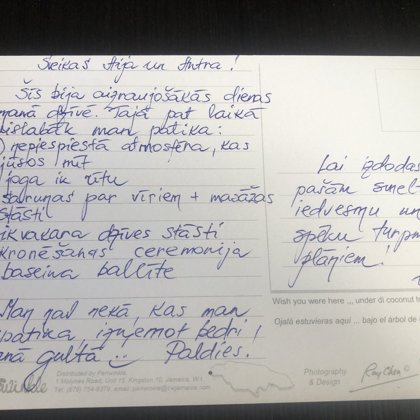 Sveikas Aija un Antra!
Šīs bija aizraujošākās dienas
manā dzīvē. Tajā pat laikā
vislabāk man patika:
) nepiespiestā atmosfēra, kas
ļūsos mīt
joga ik rītu
sarunas par vīriem + mazāžas
stāsti
ikvakara dzīves stāsti
kronēšanas ceremonija
baseina ballīte
Man nav nekā, kas man
patika, izņemot bedri
anā gultā :) Paldies.
Lai izdodas
pašām smelt
iedvesmu un
spēku turpm
plāniem!
Wish you were here ... under di coconut tr
Ojalá estuvieras aquí ... bajo el árbol de
Distributed by Periwinkle,
1 Molynes Road, Unit 15, Kingston 10, Jamaica, W.I.
Tel: (876) 754-8379 email: periwinkle@cwjamaica.com
Photography
& Design
Ray Chen